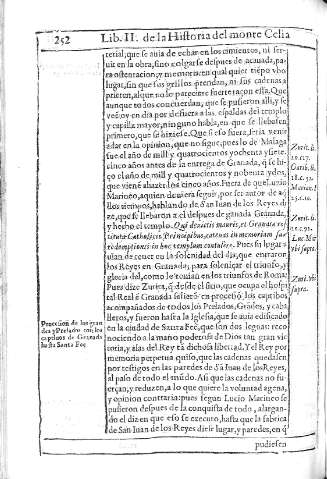 252
Lib. II. de la Historia del monte Celia
terial, que se auia de echar en los cimientos, ni ser-
uir en la obra, sino colgarse despues de acauada, pa-
ra ostentacion, y memoria en qual quier tiẽpo y
lugar, sin que sus grillos prendan, ni sus cadenas a-
prieten, alque no lo pareciere fuerte raçon essa. Que
aunque todos concuerdan, que se pusieron alli, y se
veẽ oy en dia por defuera a las espaldas del templo
y capilla mayor, ninguno habla, en que se lleuasen
primero, que se hiziese. Que si eso fuera, seria venir
a dar en la opinion, que no sigue, pues lo de Malaga
fue el año de mill y quatrocientos y ochenta y siete.
cinco años antes de la entrega de Granada, q̃ se hi-
ço el año de mill, y quatrocientos y nobenta y dos,
que viene a hazer los cinco años. Fuera de que Lucio
Marineo, a quien deuiera seguir, por ser autor de a-
los tiempos, hablando de San Iuan de los Reyes di
ze, que se lleuaron a el despues de ganada Granada,
y hecho el templo. Qui deuictis mauris, et Granata re
Catholicis Principibus, catenas in memoriam suæ
redemptionis in hoc templum contulere. Pues su lugar
uian de tener en la solenidad del dia, que entraron
los Reyes en Granada, para solenizar el triunfo, y
gloria del, como se lleuauan en los triunfos de Roma:
Pues dize Zurita, q̃ desde el sitio, que ocupa el hospi
tal Real ẽ Granada salieron en procesiõ, los captibos
acompañados de todos los Prelados, Grãdes, y caba
lleros, y fueron hasta la Iglesia, que se auia edificado
en la ciudad de Santa Feê, que son dos leguas: reco-
nociendo a la mano poderosa de Dios tan gran vic
toria, y alas del Rey la dichosa libertad. Y el Rey por
memoria perpetua quiso, que las cadenas quedasen
por testigos en las paredes de Sã Iuan de los Reyes,
al paso de todo el mũdo. Asi que las cadenas no fu-
erçan, y reduzen, a lo que quiere la voluntad agena,
y opinion contraria: pues segun Lucio Marineo se
pusieron despues de la conquista de todo, alargan-
do el dia en que eso se executo, hasta que la fabrica
de San Iuan de los Reyes diese lugar, y paredes, en q̃
pudiesen
Procesion de los gran
des y Prelados con los
captibos de Granada
hasta Santa Feê
Zurit. li.
Garib. li.
Zurit. li.
Luc. Mar
vbi supra.
Zuri. Vbi
supra.